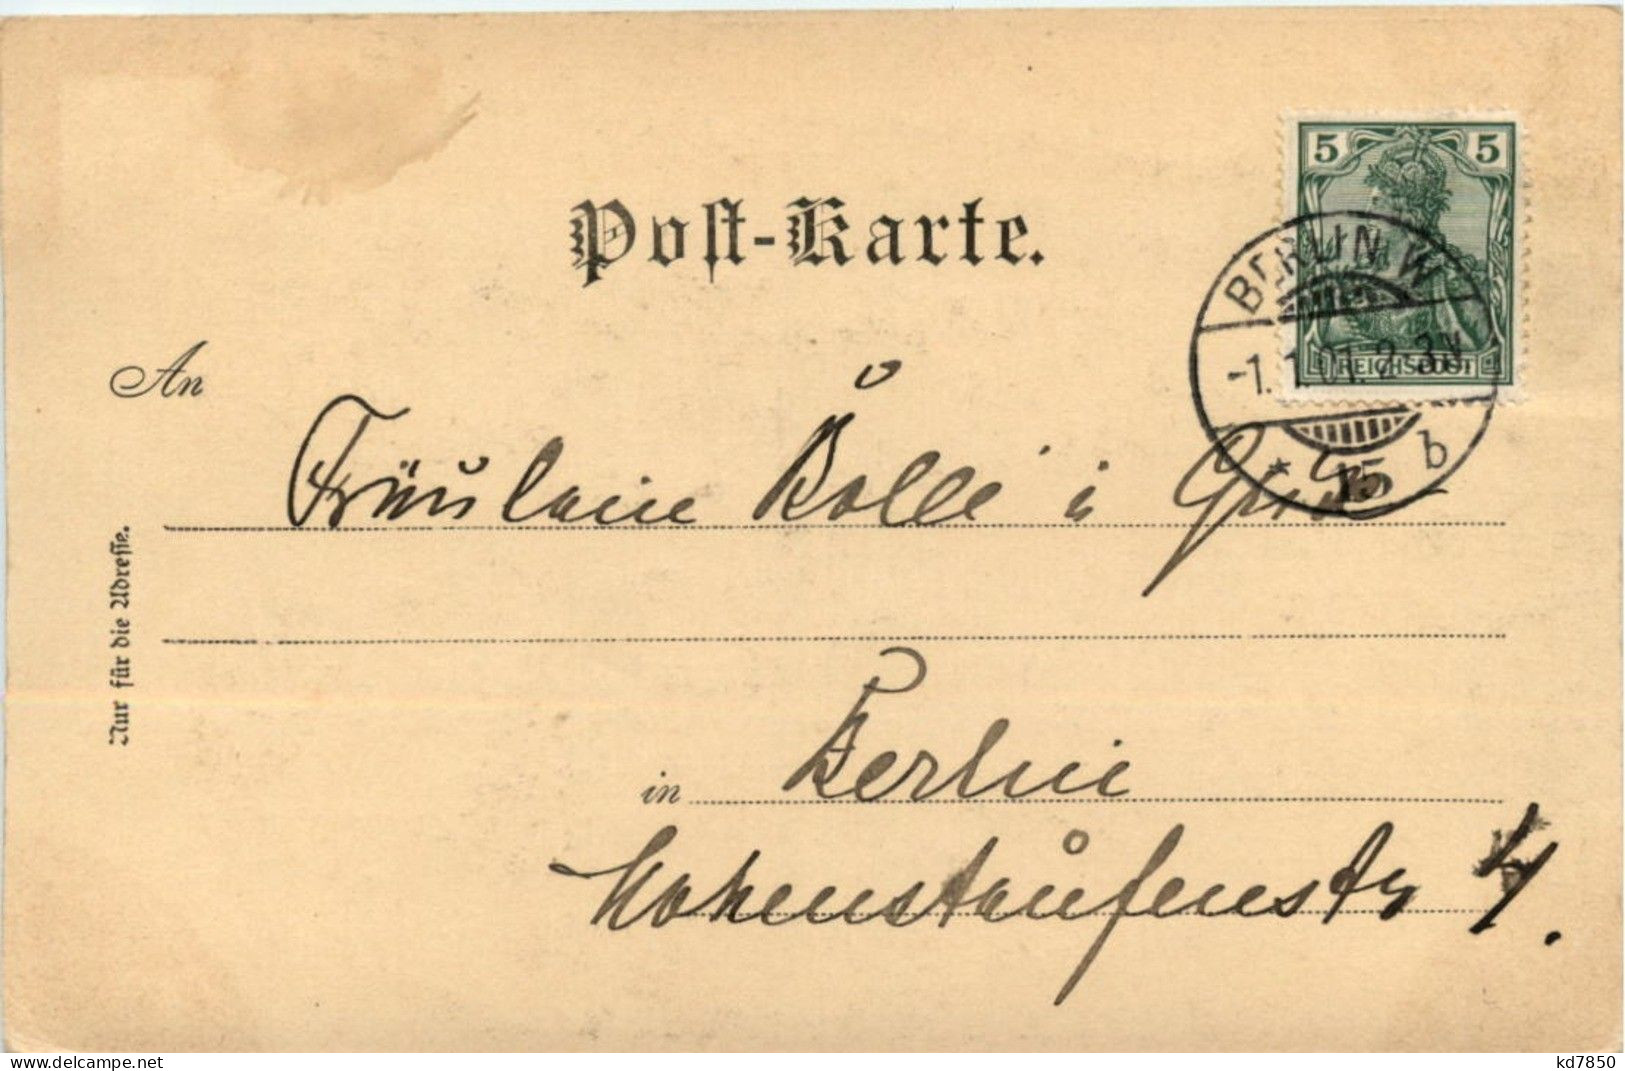 Post-Karte.
5 5
REICHSPOST
BERLIN.W
-1.1.01.2-3N.
* 15 b
An
Fräulein
Nur für die Adresse.
in Berlin
Hohenstaufenstr 4.
www.delcampe.net
kd7850